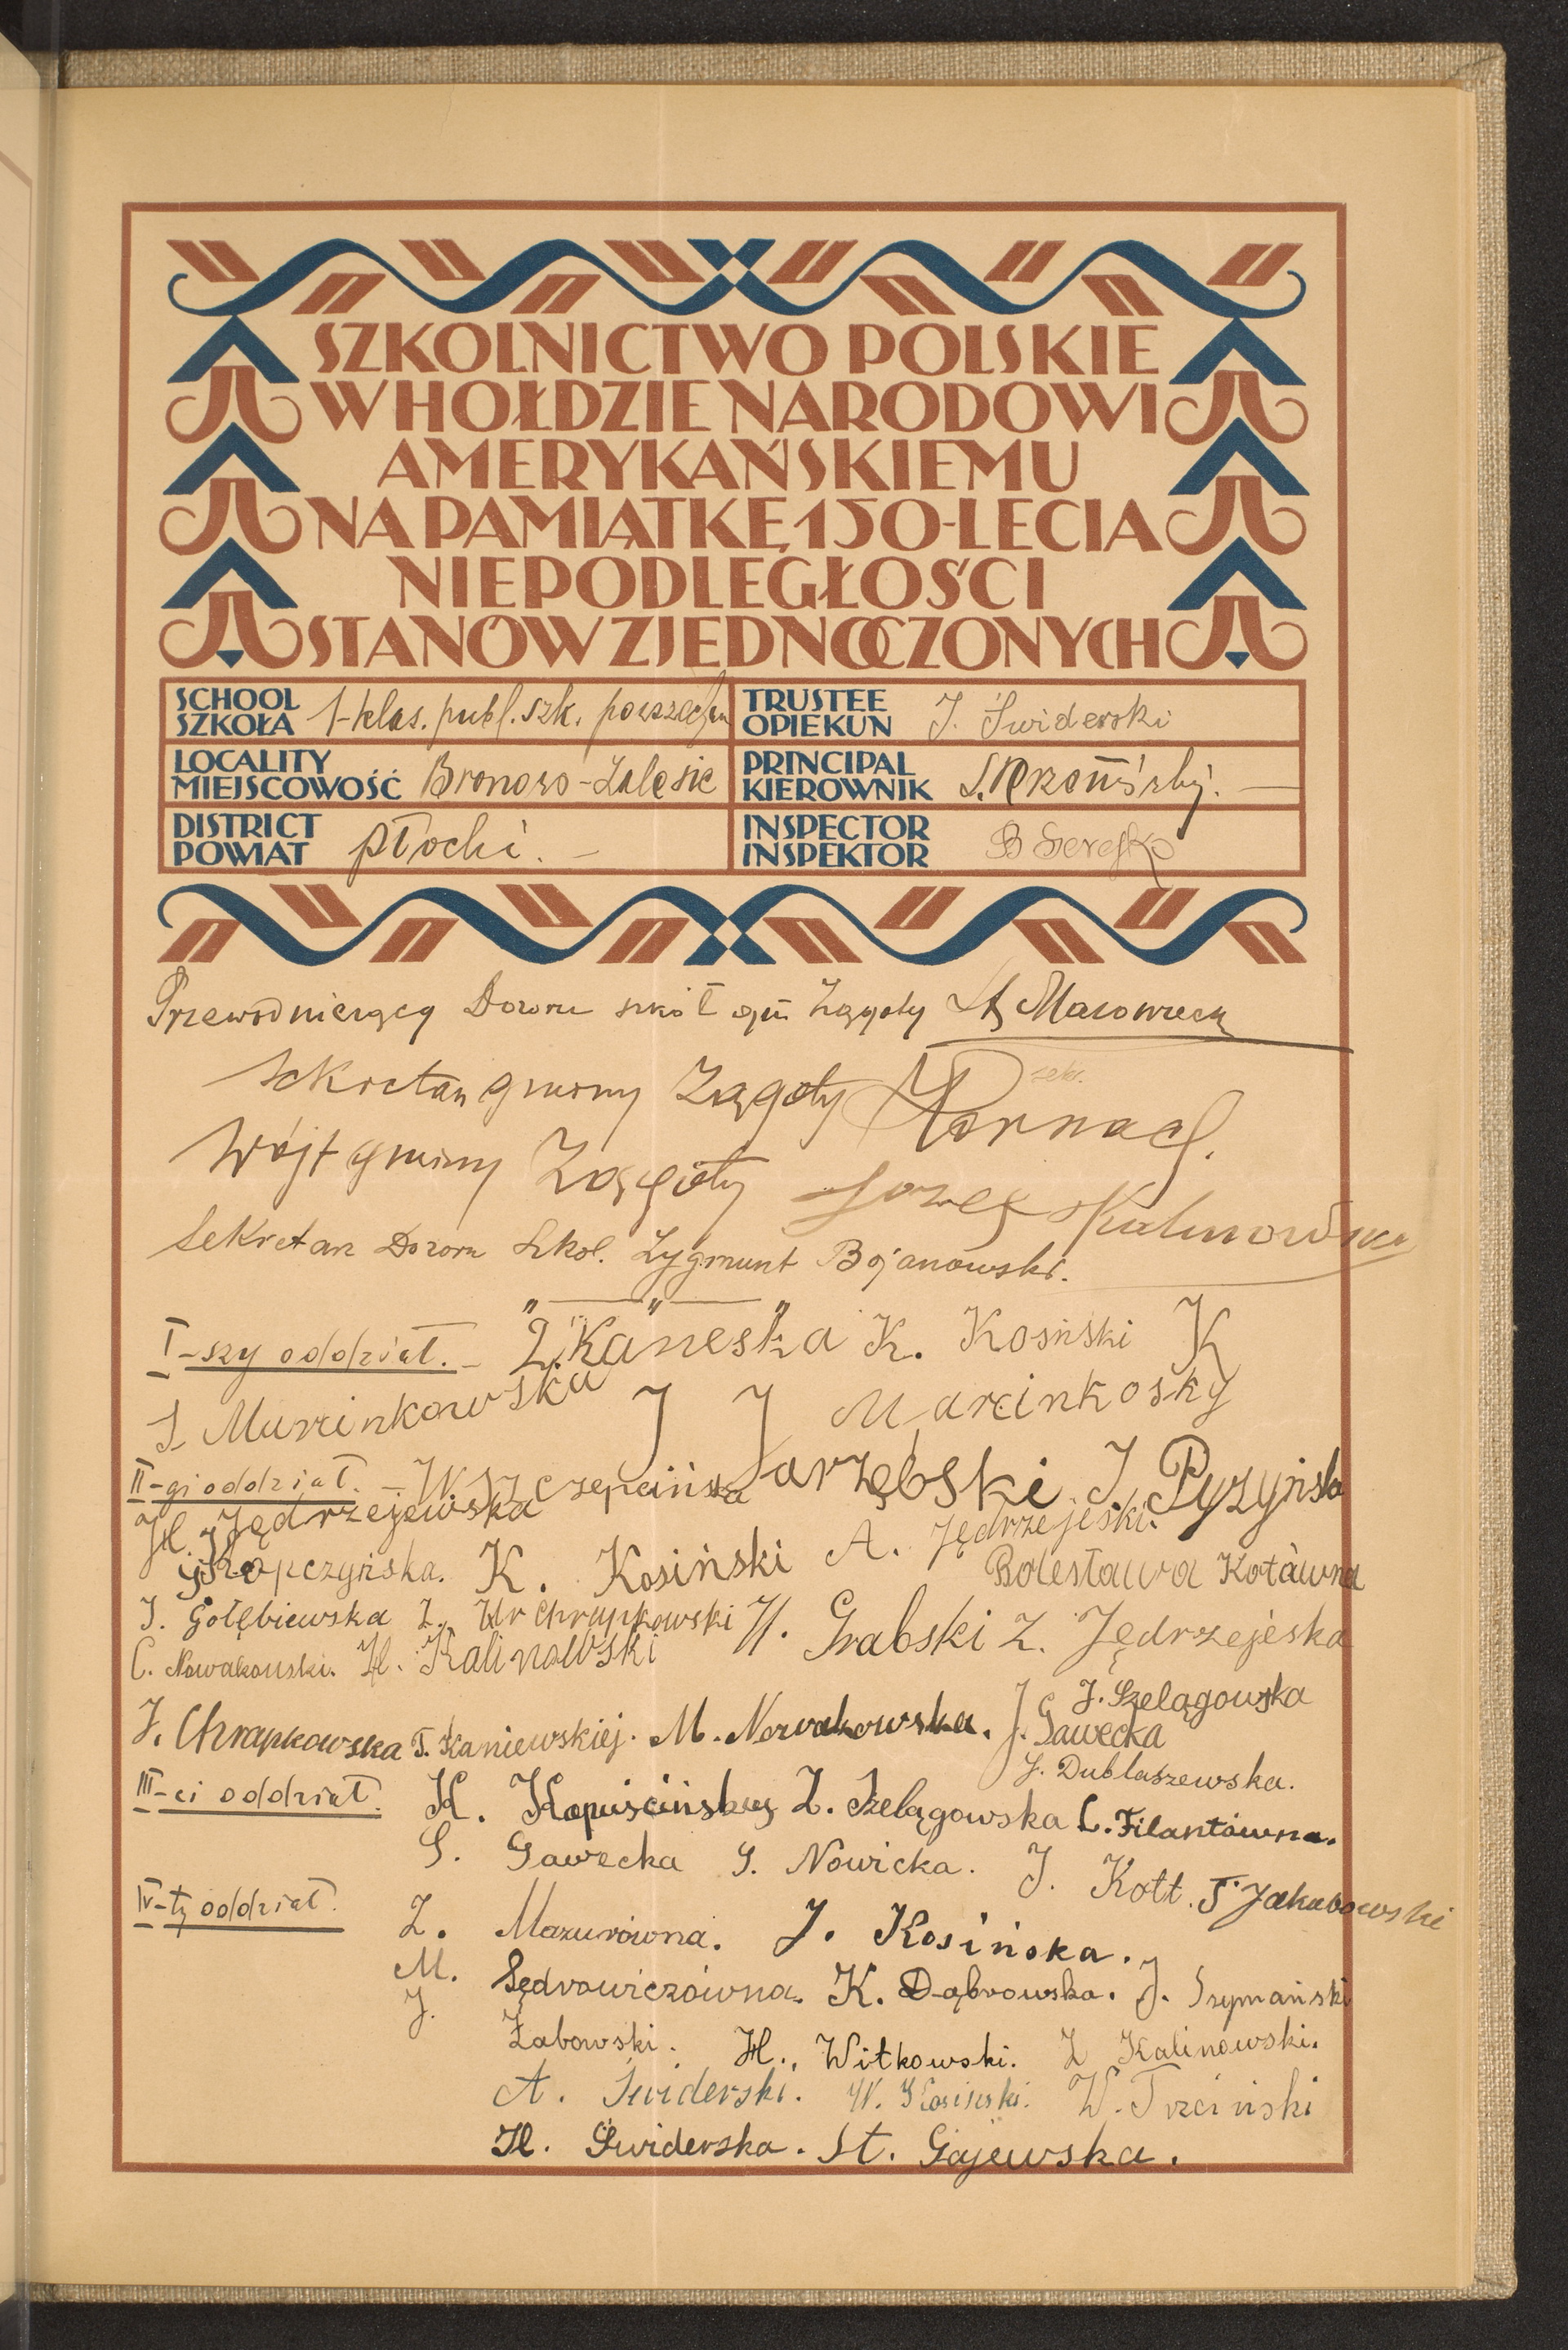 SZKOLNICTWO POLSKIE
W HOŁDZIE NARODOWI
AMERYKAŃSKIEMU
NA PAMIĄTKĘ 150-LECIA
NIEPODLEGŁOŚCI
STANÓW ZJEDNOCZONYCH
SCHOOL
SZKOŁA 1-klas. publ. szk. powszechn
TRUSTEE
OPIEKUN J. Świderski
LOCALITY
MIEJSCOWOŚĆ Bronowo-Zalesie
PRINCIPAL
KIEROWNIK
DISTRICT
POWIAT płocki. —
INSPECTOR
INSPEKTOR
Przewodniczący Dozoru szkół gm Zągoty St Mazowiecki
Sekretarz gminy Zągoty
Wójt gminy Zągoty Józef Kalinowski
Sekretarz Dozoru Szkol. Zygmunt Bojanowski.
" — " — "
I-szy oddział. — K. Kosiński K
Marcinkowska J J Marcinkosky
II-gi oddział. — W Szczepańska Jarzębski J. Pyzyńska
H. Jędrzejewska
Kopczyńska. K. Kosiński A. Jędrzejeski.
Bolesława Kotówna
J. Gołębiewska Z. Chrapkowski H. Grabski Z. Jędrzejeska
C. Nowakowski. H. Kalinowski
J. Szelągowska
J. Chrapkowska T. Kaniewskiej. M. Nowakowska. J. Gawecka
J. Dublaszewska.
III-ci oddział. K. Kapuściński Z. Szelągowska C. Filantówna.
G. Gawecka G. Nowicka. J. Kott. T. Jakubowski
IV-ty oddział. Z. Mazurówna. J. Kosińska.
M. Sędrowiczówna. K. Dąbrowska. J. Szymański
J. Żabowski. H. Witkowski. Z Kalinowski.
A. Świderski. W. Kosiński. W. Trzciński
H. Świderska. St. Gajewska.